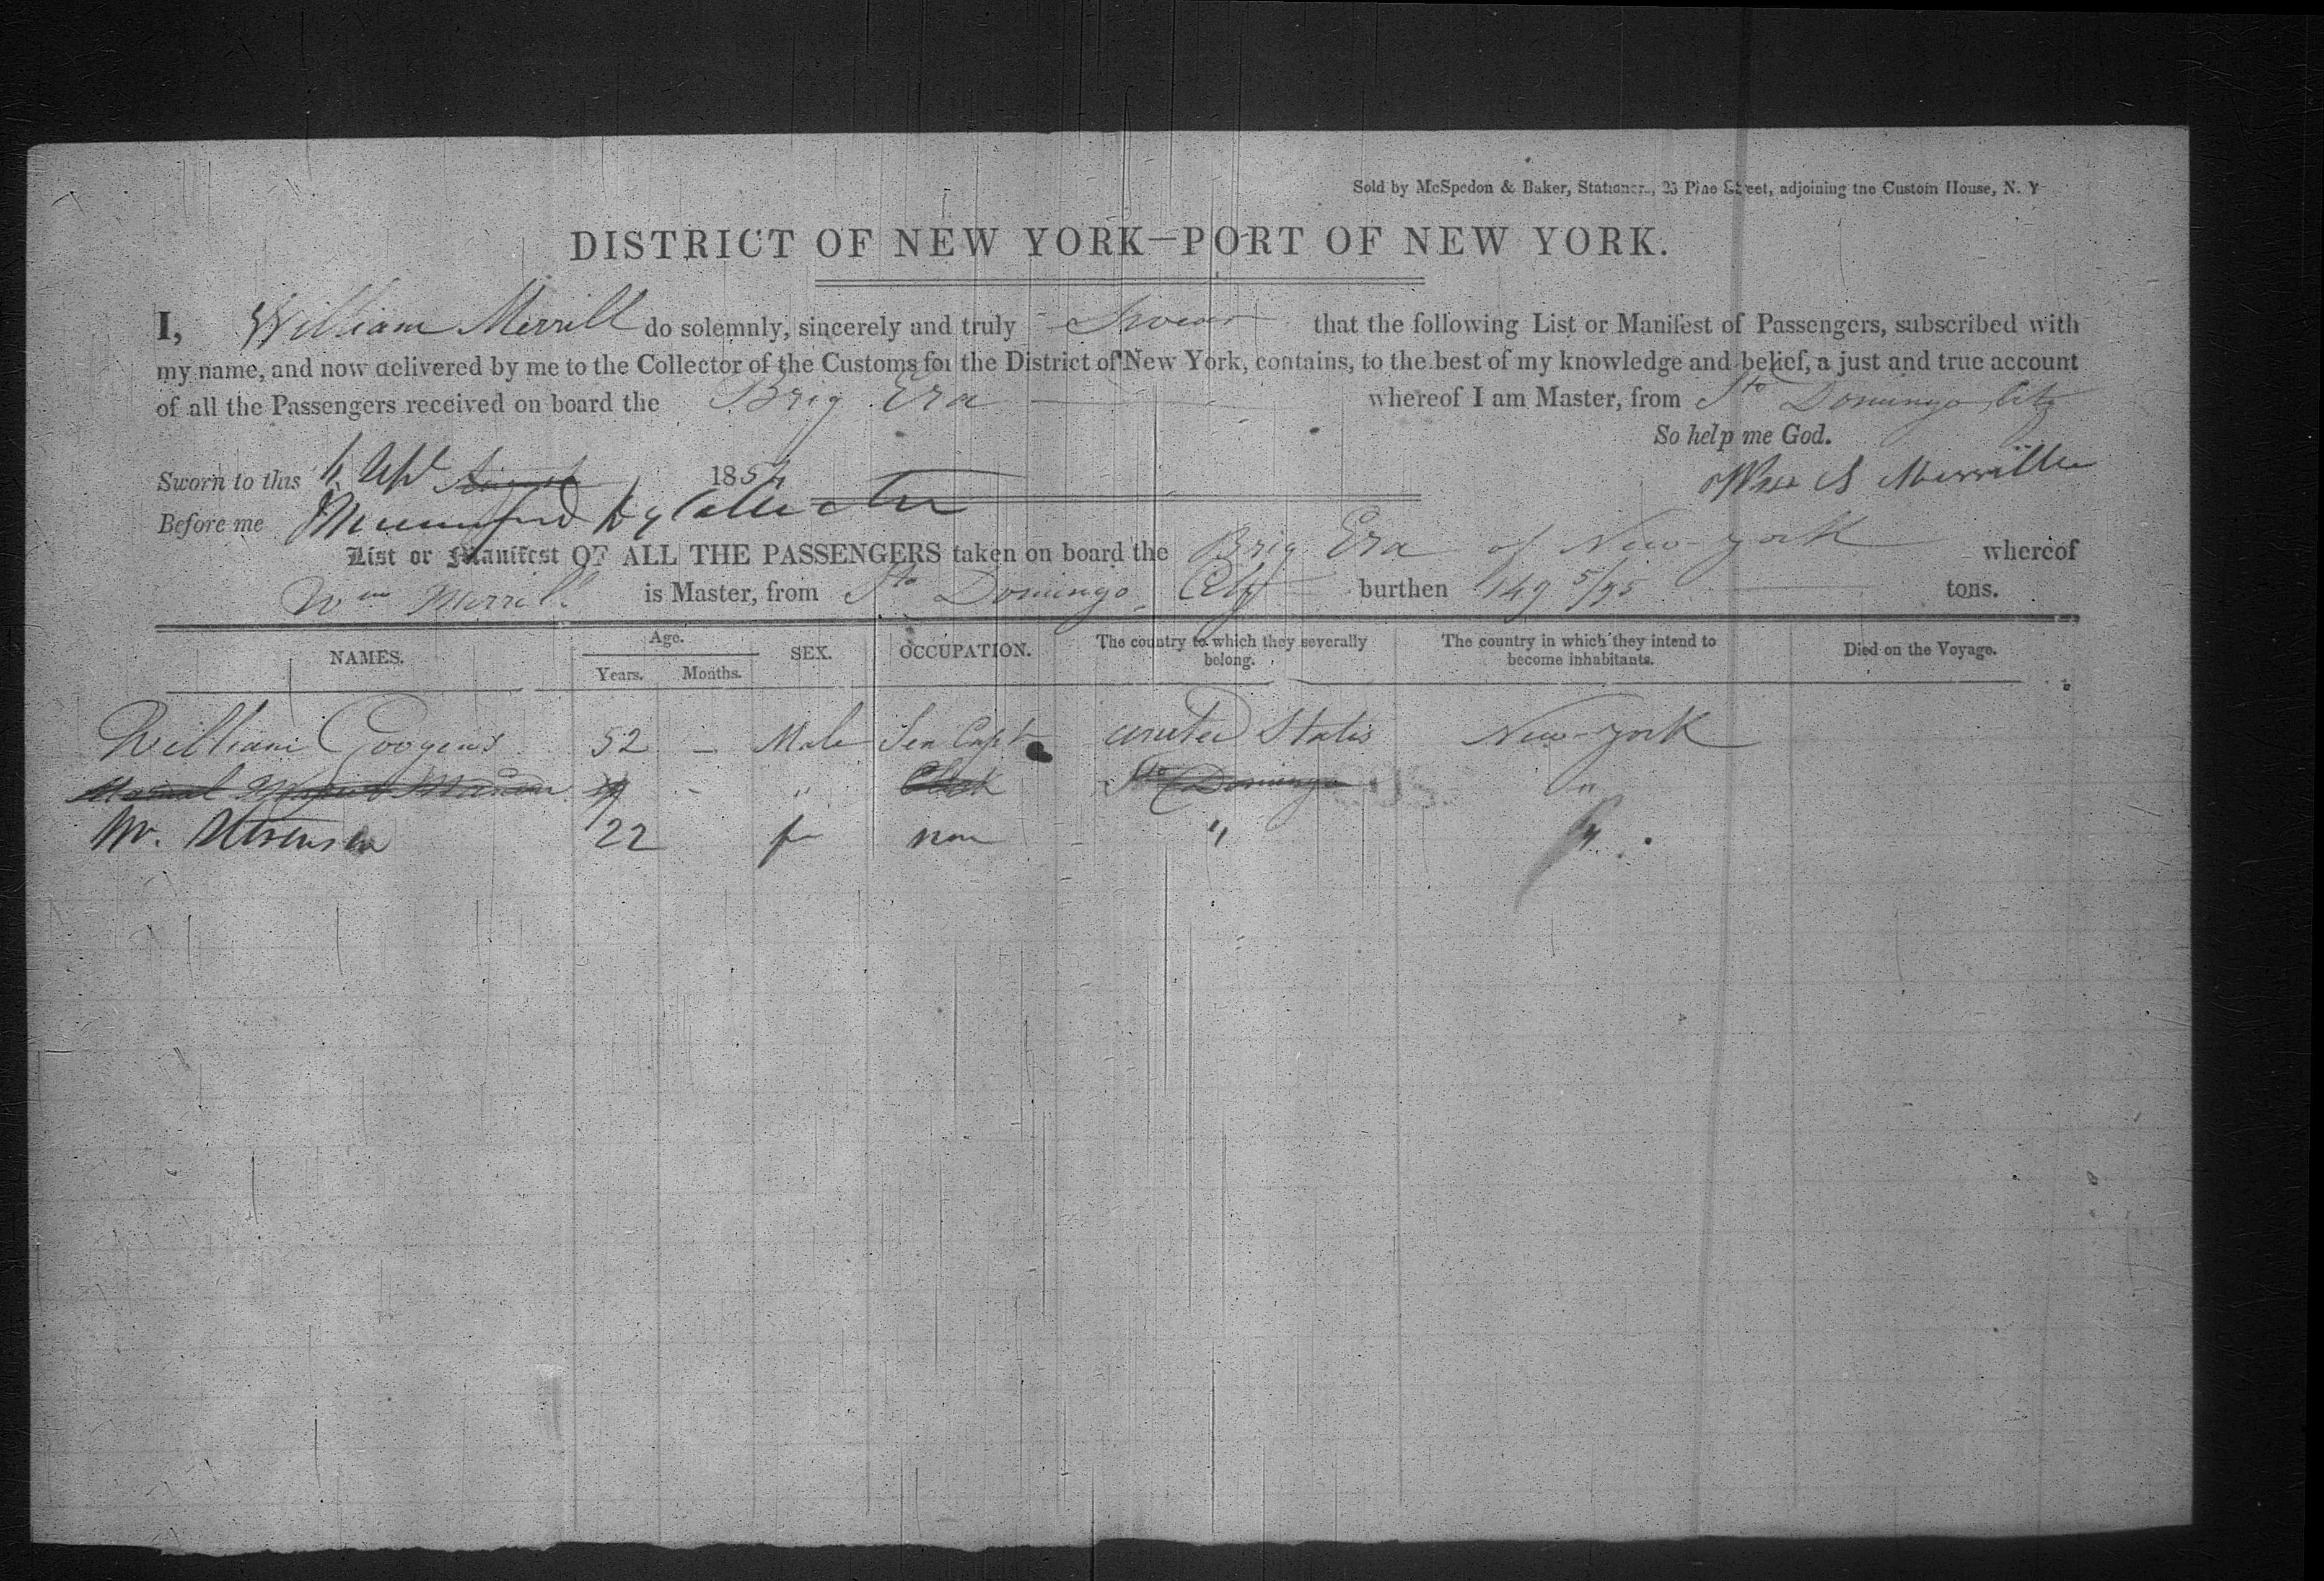 Sold by McSpedon & Baker, Stationers, 25 Pine Street, adjoining the Custom House, N. Y
DISTRICT OF NEW YORK—PORT OF NEW YORK.
I, William Merrill do solemnly, sincerely and truly Swear that the following List or Manifest of Passengers, subscribed with
my name, and now delivered by me to the Collector of the Customs for the District of New York, contains, to the best of my knowledge and belief, a just and true account
of all the Passengers received on board the Brig Era whereof I am Master, from Sto Domingo City
So help me God.
Sworn to this 1852 Wm S Merrill
Before me Collector
List or Manifest OF ALL THE PASSENGERS taken on board the Brig Era of New-york whereof
Wm Merrill is Master, from Sto Domingo City burthen 149 5/95 tons.
NAMES. Age. Years. Months. SEX. OCCUPATION. The country to which they severally belong. The country in which they intend to become inhabitants. Died on the Voyage.
William Googins 52 — Male Sea Capt united States New-york
Manuel - " Clerk Sto Domingo "
22 f non " "